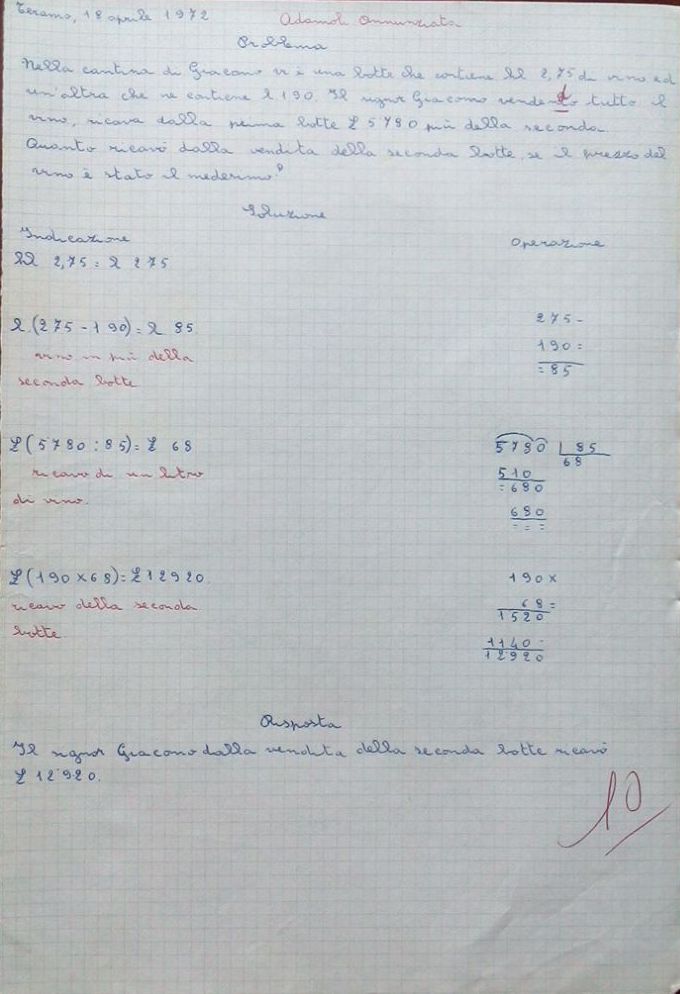 Teramo, 18 aprile 1972 Adamoli Annunziata
Problema
Nella cantina di Giacomo vi è una botte che contiene hl 2,75 di vino ed
un'altra che ne contiene l 190. Il signor Giacomo vendendo tutto il
vino, ricava dalla prima botte £ 5780 più della seconda.
Quanto ricavò dalla vendita della seconda botte, se il prezzo del
vino è stato il medesimo?
Soluzione
Indicazione Operazione
hl 2,75 = l 275
l (275 - 190) = l 85
vino in più della
seconda botte
275 -
190 =
= 85
£ (5780 : 85) = £ 68
ricavo di un litro
di vino.
5780 | 85
68
510
= 680
680
= = =
£ (190 x 68) = £ 12920
ricavo della seconda
botte
190 x
68 =
1520
1140 -
12920
Risposta
Il signor Giacomo dalla vendita della seconda botte ricavò
£ 12920.
10